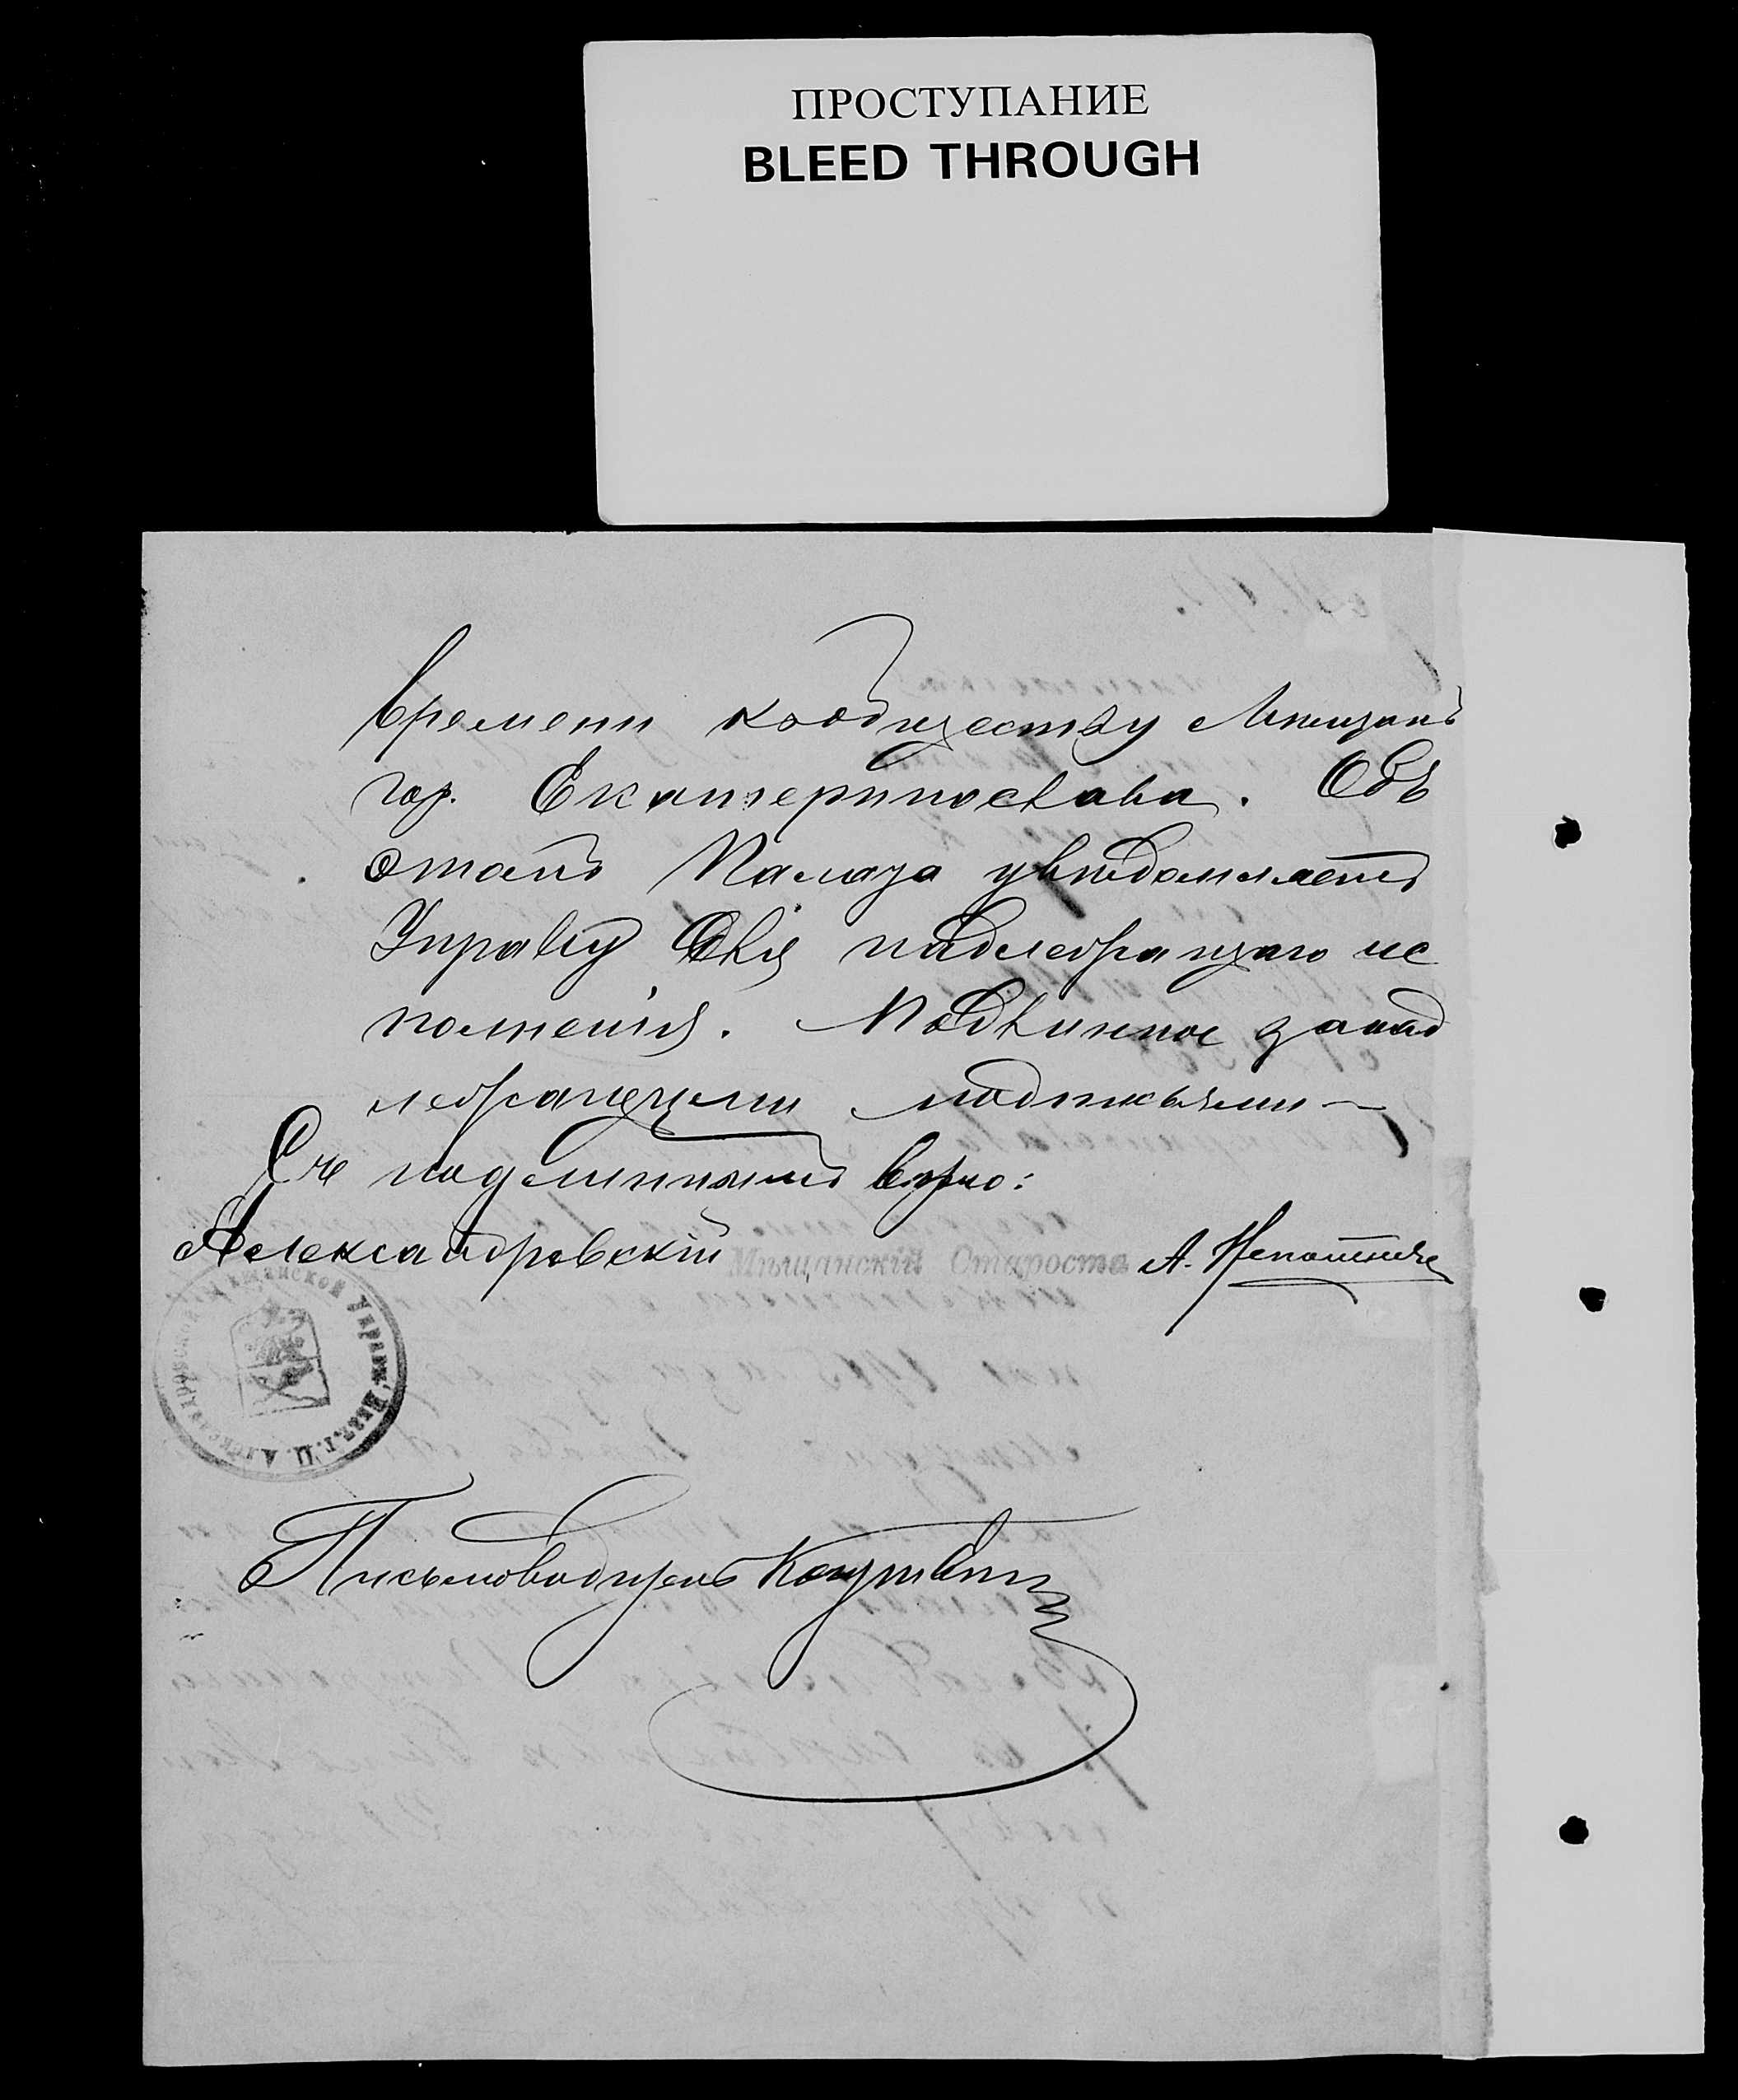 ПРОСТУПАНИЕ
BLEED THROUGH
времени кообществу Мѣщанъ
гор. Екатеринослава. Объ
этомъ Палата увѣдомляетъ
Управу для надлежащаго ис
полненія. Подлинное за над
лежащими подписьями
Съ подлиннымъ вѣрно:
Александровскій Мѣщанскій Староста А.
Мѣщанской Управы Екат. г. Александровской
Письмоводитель